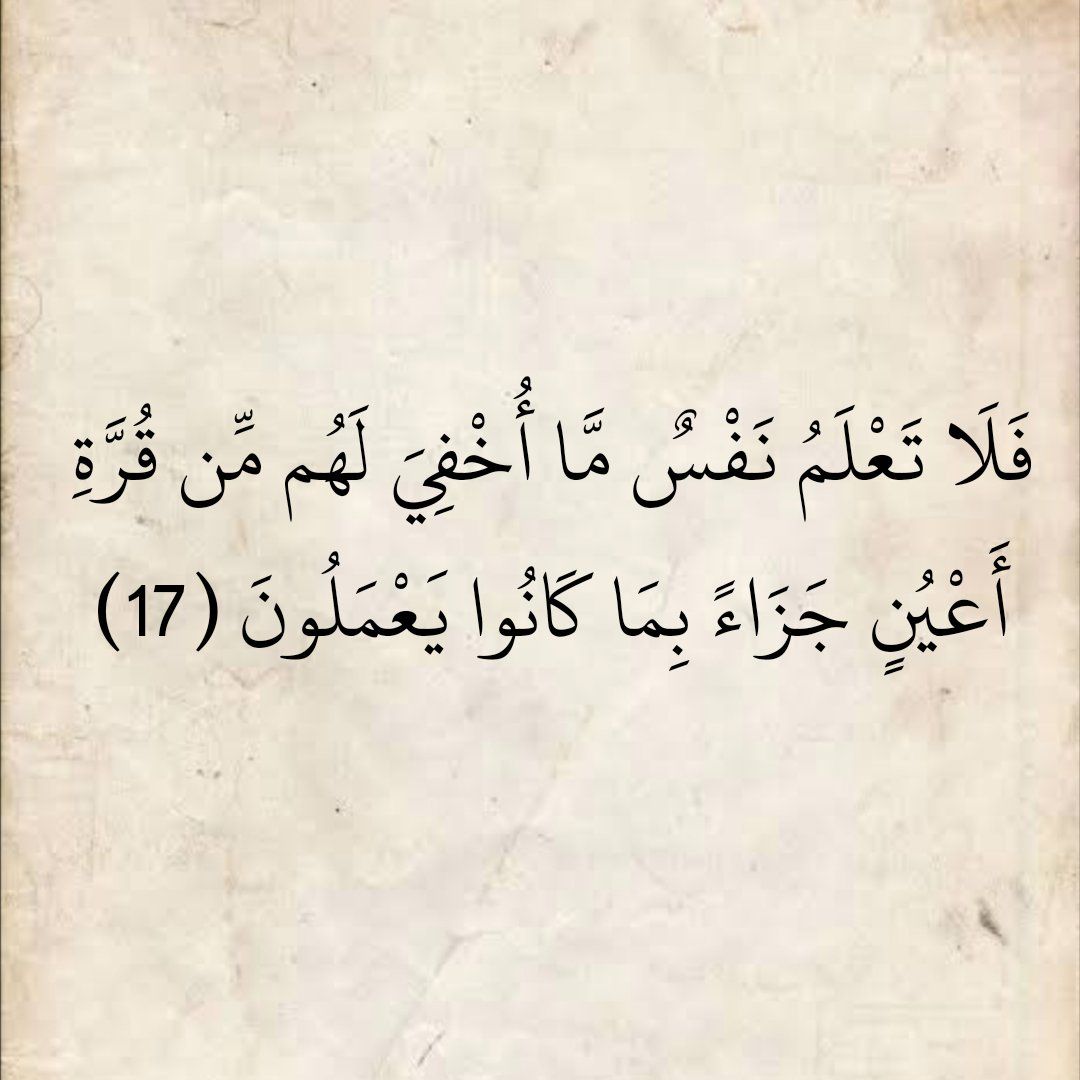 فَلَا تَعْلَمُ نَفْسٌ مَّا أُخْفِيَ لَهُم مِّن قُرَّةِ
أَعْيُنٍ جَزَاءً بِمَا كَانُوا يَعْمَلُونَ (17)